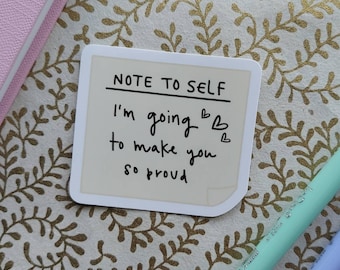 NOTE TO SELF
I'm going
to make you
so proud